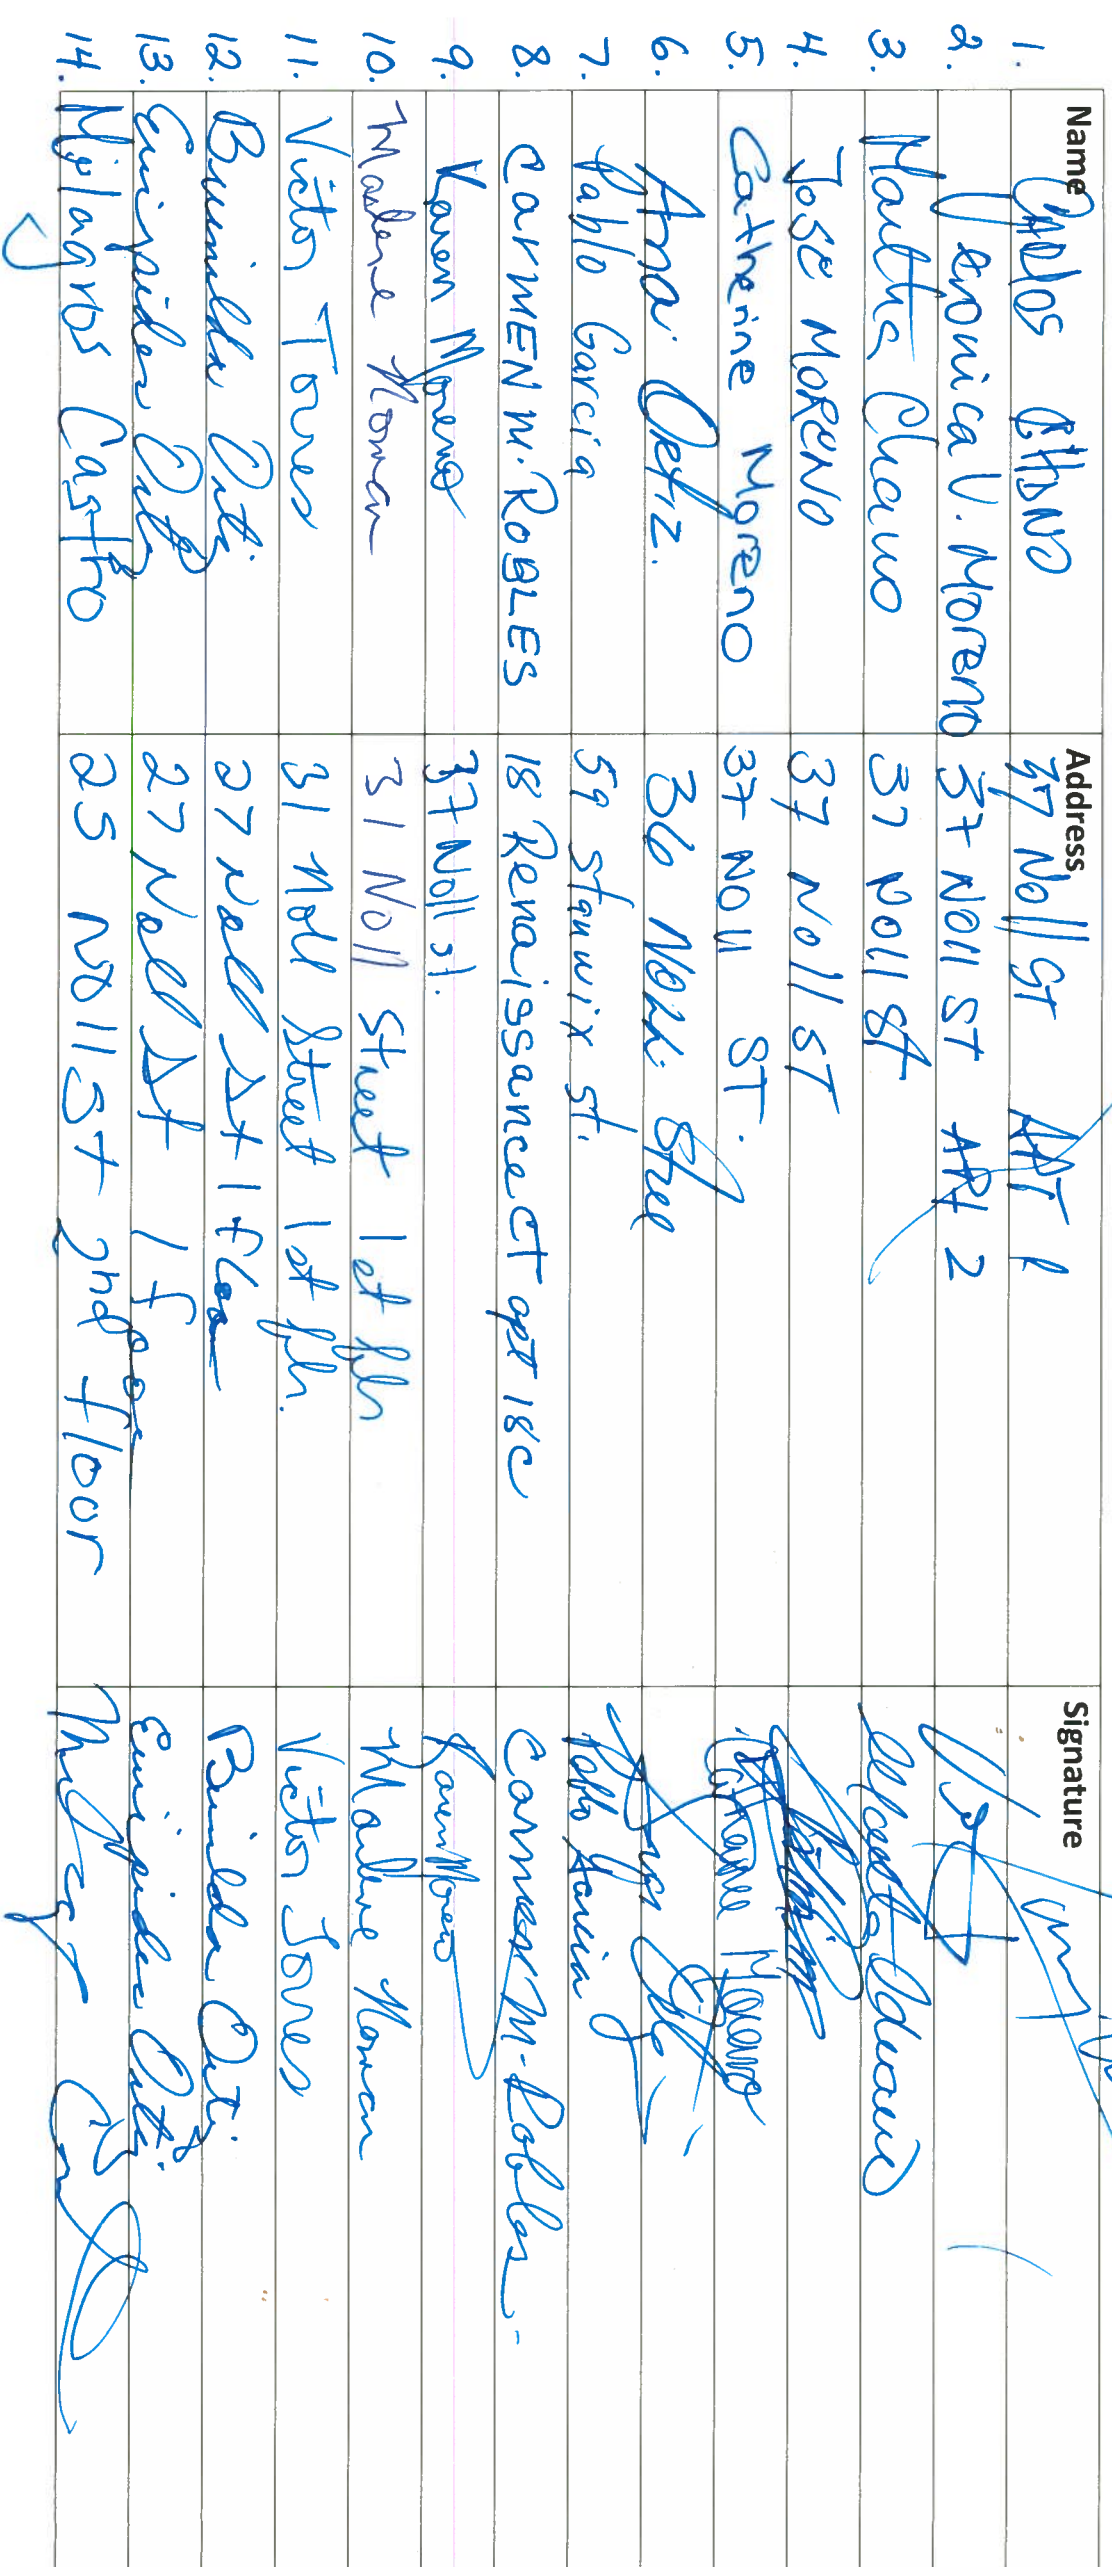 Name Address Signature
1. Carlos 37 Noll St APT 1
2. Veronica V. Moreno 37 Noll ST APt 2
3. Martha Chavo 37 Noll St
4. Jose MoReNo 37 Noll ST
5. Catherine Moreno 37 Noll ST. Catherine Moreno
6. Ana Ortiz. 36 Noll. Stree Ana
7. Pablo Garcia 59 stanwix st. Pablo Garcia
8. CarmEN M. RoBLES 18 Renaissance CT apt 18C Carmen M. Robles
9. Karen Moreno 37 Noll st. Karen Moreno
10. Marlene Roman 31 Noll Street 1st flr Marlene Roman
11. Victor Torres 31 Noll Street 1st flr. Victor Torres
12. Brunilda Ortiz 27 Noll St 1 floor Brunilda Ortiz
13. Euripides Ortiz 27 Noll St 1 floor Euripides Ortiz
14. Milagros Castro 25 Noll St 2nd floor